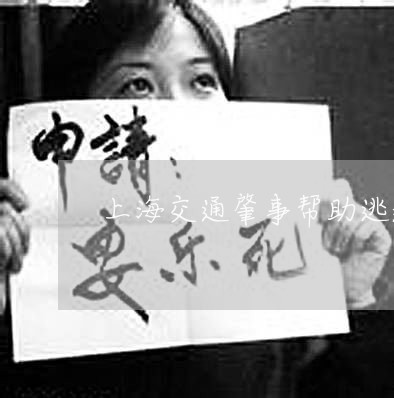 申請：
上海交通肇事帮助逃
要乐死